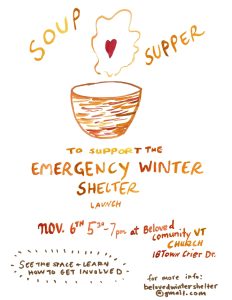 SOUP SUPPER
TO SUPPORT THE
EMERGENCY WINTER
SHELTER
LAUNCH
NOV. 6TH 5:30-7pm at Beloved
Comunity VT
CHURCH
18 Town Crier Dr.
SEE THE SPACE + LEARN
HOW TO GET INVOLVED
for more info:
belovedwintershelter
@gmail.com